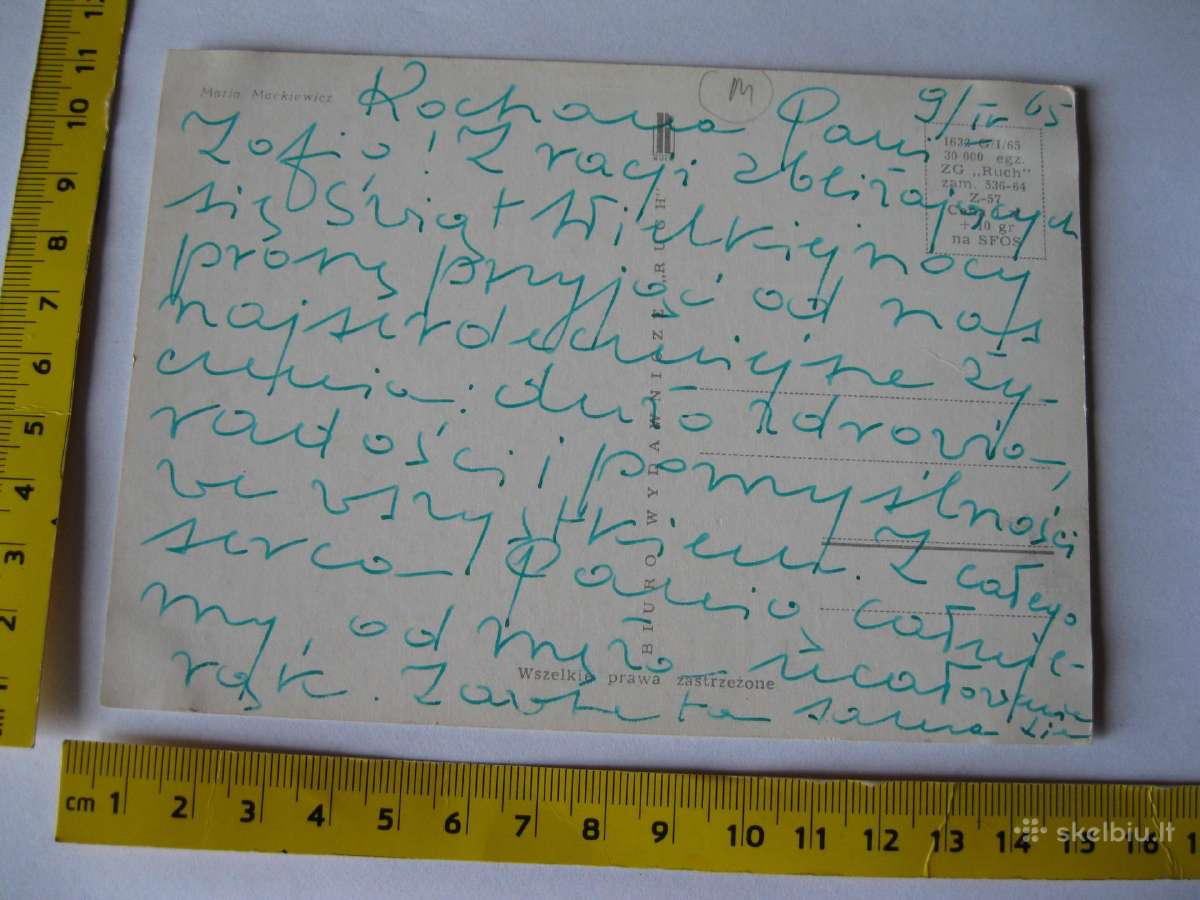 Maria Mackiewicz
M
9/IV 65
Kochana Pani
Zofjo! Z racji zbliżających
się Świąt Wielkiejnocy
proszę przyjąć od nas
najserdeczniejsze ży-
czenia: dużo zdrowia,
radości i pomyślności
we wszystkiem. Z całego
serca Panią całuje-
my, od męża ucałowanie
rąk. Zawsze ta sama
1632 G/I/65
30 000 egz.
ZG „Ruch”
zam. 536-64
Z-57
+ 10 gr
na SFOS
RUCH
BIURO WYDAWNICZE „RUCH”
Wszelkie prawa zastrzeżone
12 11 10 9 8 7 6 5 4 3 2 1 cm
cm 1 2 3 4 5 6 7 8 9 10 11 12 13 14 15 16 1
skelbiu.lt